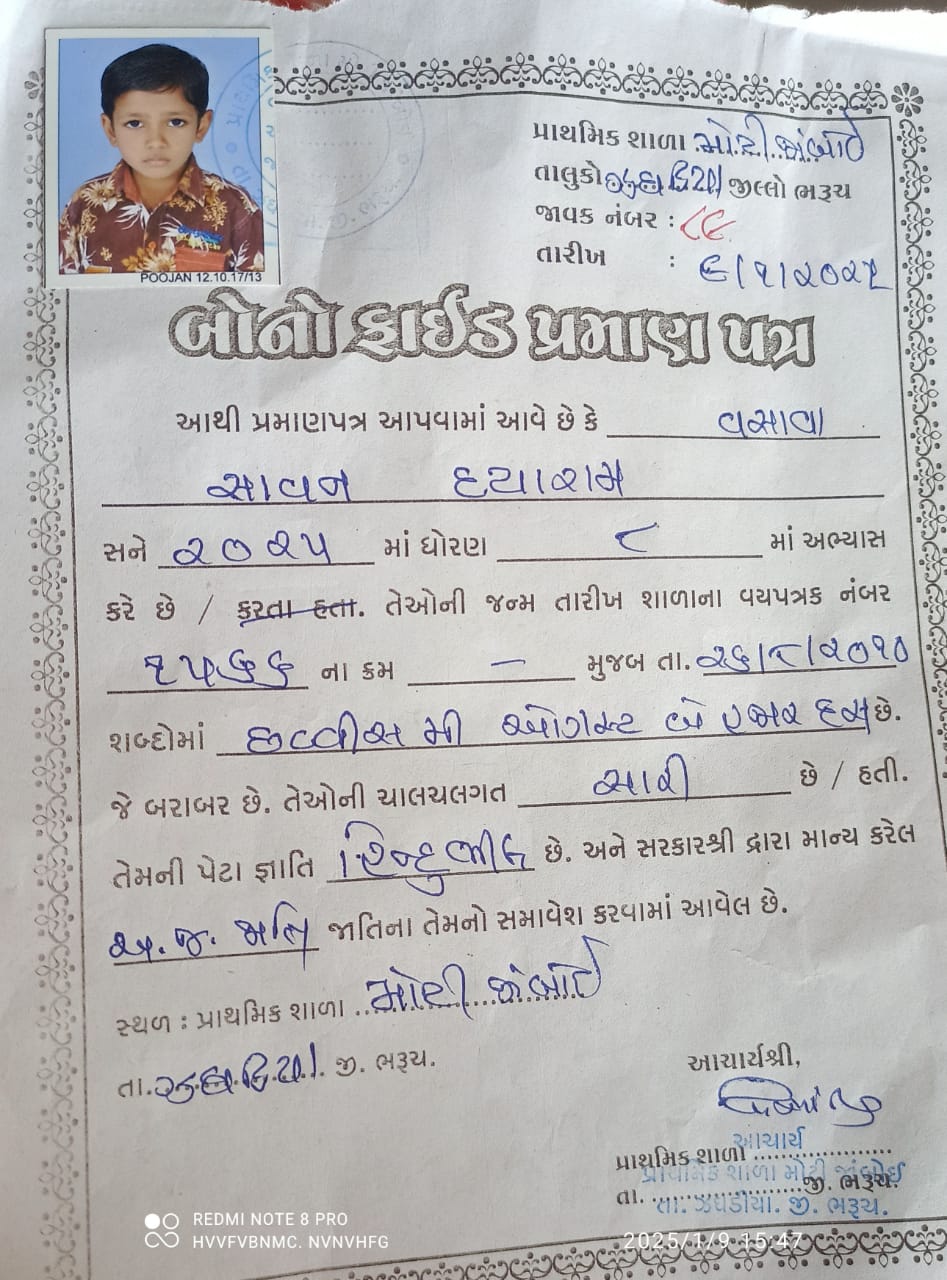 POOJAN 12.10.17/13
પ્રાથમિક શાળા મોટી જાંબોઈ
તાલુકો ઝઘડિયા જીલ્લો ભરૂચ
જાવક નંબર : ૮૯
તારીખ : ૯/૧/૨૦૨૫
બોનોફાઈડ પ્રમાણ પત્ર
આથી પ્રમાણપત્ર આપવામાં આવે છે કે વસાવા
સાવન દયારામ
સને ૨૦૨૫ માં ધોરણ ૮ માં અભ્યાસ
કરે છે / કરતા હતા. તેઓની જન્મ તારીખ શાળાના વયપત્રક નંબર
૧૫૬૬ ના ક્રમ — મુજબ તા. ૨૬/૮/૨૦૧૦
શબ્દોમાં છવ્વીસ મી ઓગસ્ટ બે હજાર દસ છે.
જે બરાબર છે. તેઓની ચાલચલગત સારી છે / હતી.
તેમની પેટા જ્ઞાતિ હિન્દુ ભીલ છે. અને સરકારશ્રી દ્વારા માન્ય કરેલ
અ.જ. જાતિ જાતિના તેમનો સમાવેશ કરવામાં આવેલ છે.
સ્થળ : પ્રાથમિક શાળા મોટી જાંબોઈ
તા. ઝઘડિયા જી. ભરૂચ.
આચાર્યશ્રી,
આચાર્ય
પ્રાથમિક શાળા ....................
પ્રાથમિક શાળા મોટી જાંબોઈ
તા. .................... જી. ભરૂચ.
તા. ઝઘડીયા. જી. ભરૂચ.
REDMI NOTE 8 PRO
HVVFVBNMC. NVNVHFG
2025/1/9 15:47